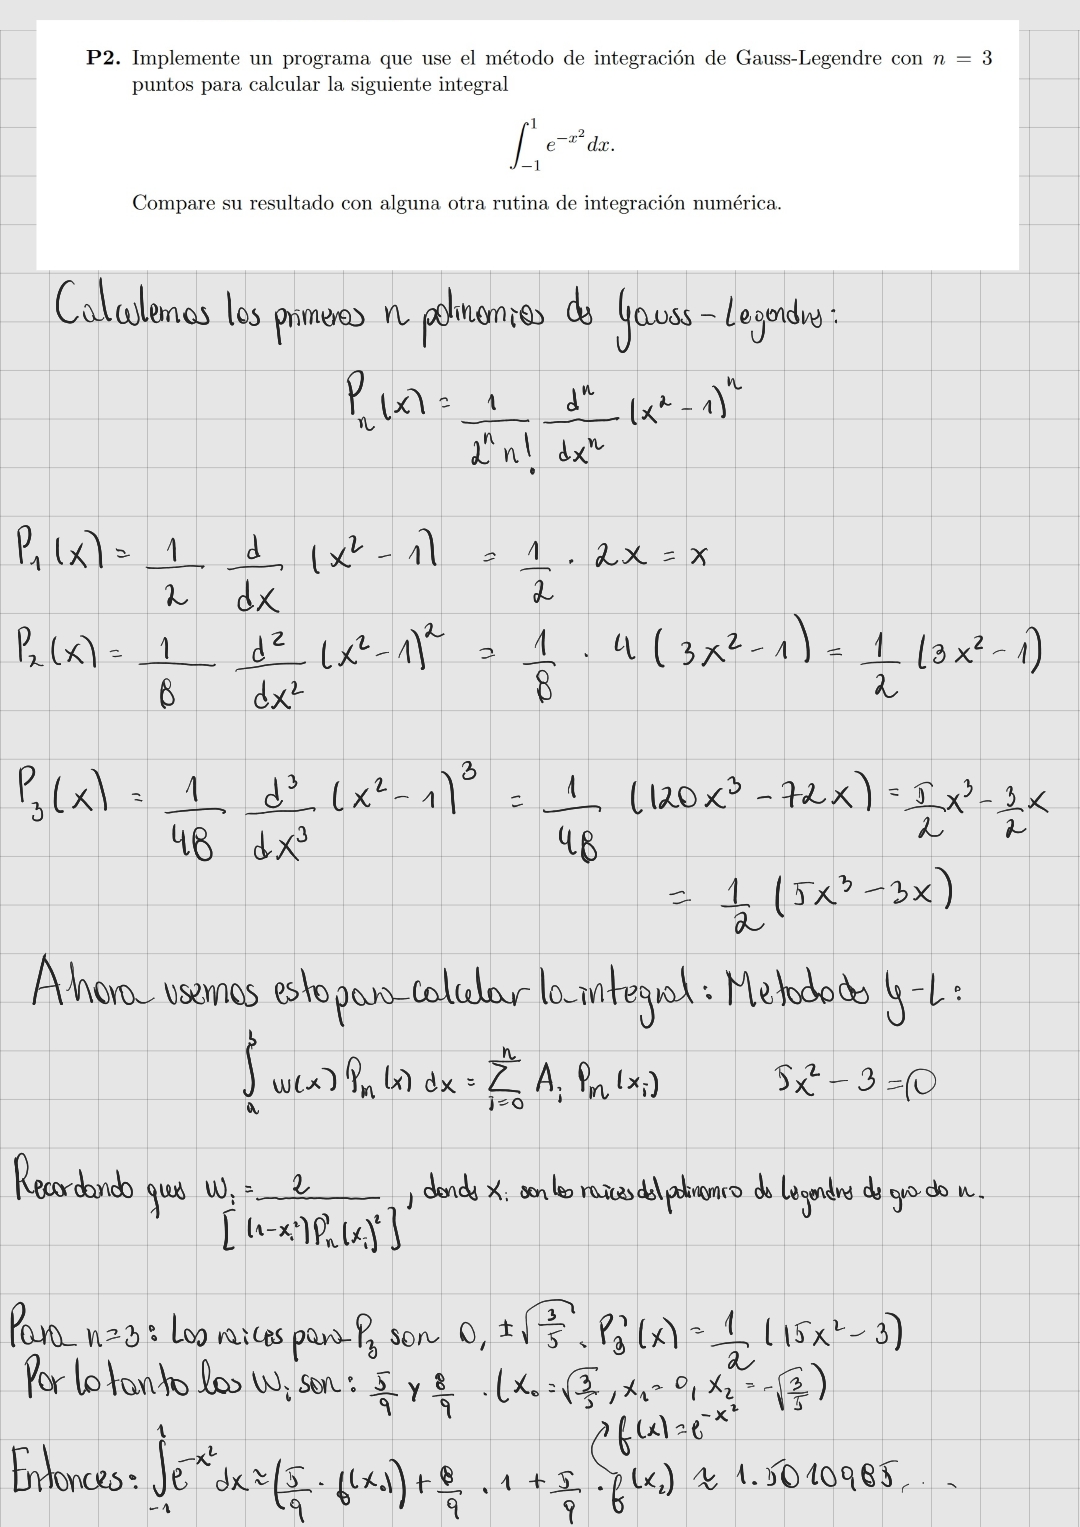 P2. Implemente un programa que use el método de integración de Gauss-Legendre con n = 3
puntos para calcular la siguiente integral
∫_{-1}^{1} e^{-x²} dx.
Compare su resultado con alguna otra rutina de integración numérica.
Calculemos los primeros n polinomios de Gauss-Legendre:
P_n(x) = 1/(2^n n!) d^n/dx^n (x² - 1)^n
P_1(x) = 1/2 d/dx (x² - 1) = 1/2 · 2x = x
P_2(x) = 1/8 d²/dx² (x² - 1)² = 1/8 · 4(3x² - 1) = 1/2 (3x² - 1)
P_3(x) = 1/48 d³/dx³ (x² - 1)³ = 1/48 (120x³ - 72x) = 5/2 x³ - 3/2 x
= 1/2 (5x³ - 3x)
Ahora usemos esto para calcular la integral: Metodo de G-L:
∫_a^b w(x) P_m(x) dx = Σ_{i=0}^{n} A_i P_m(x_i) 5x² - 3 = 0
Recordando que w_i = 2/[(1-x_i²)P'_n(x_i)²], donde x_i son las raices del polinomio de Legendre de grado n.
Para n=3: Las raices para P_3 son 0, ±√(3/5). P_3'(x) = 1/2 (15x² - 3)
Por lo tanto los w_i son: 5/9 y 8/9. (x_0 = √(3/5), x_1 = 0, x_2 = -√(3/5))
f(x) = e^{-x²}
Entonces: ∫_{-1}^{1} e^{-x²} dx ≈ (5/9 · f(x_0)) + 8/9 · 1 + 5/9 · f(x_2) ≈ 1.5010985...